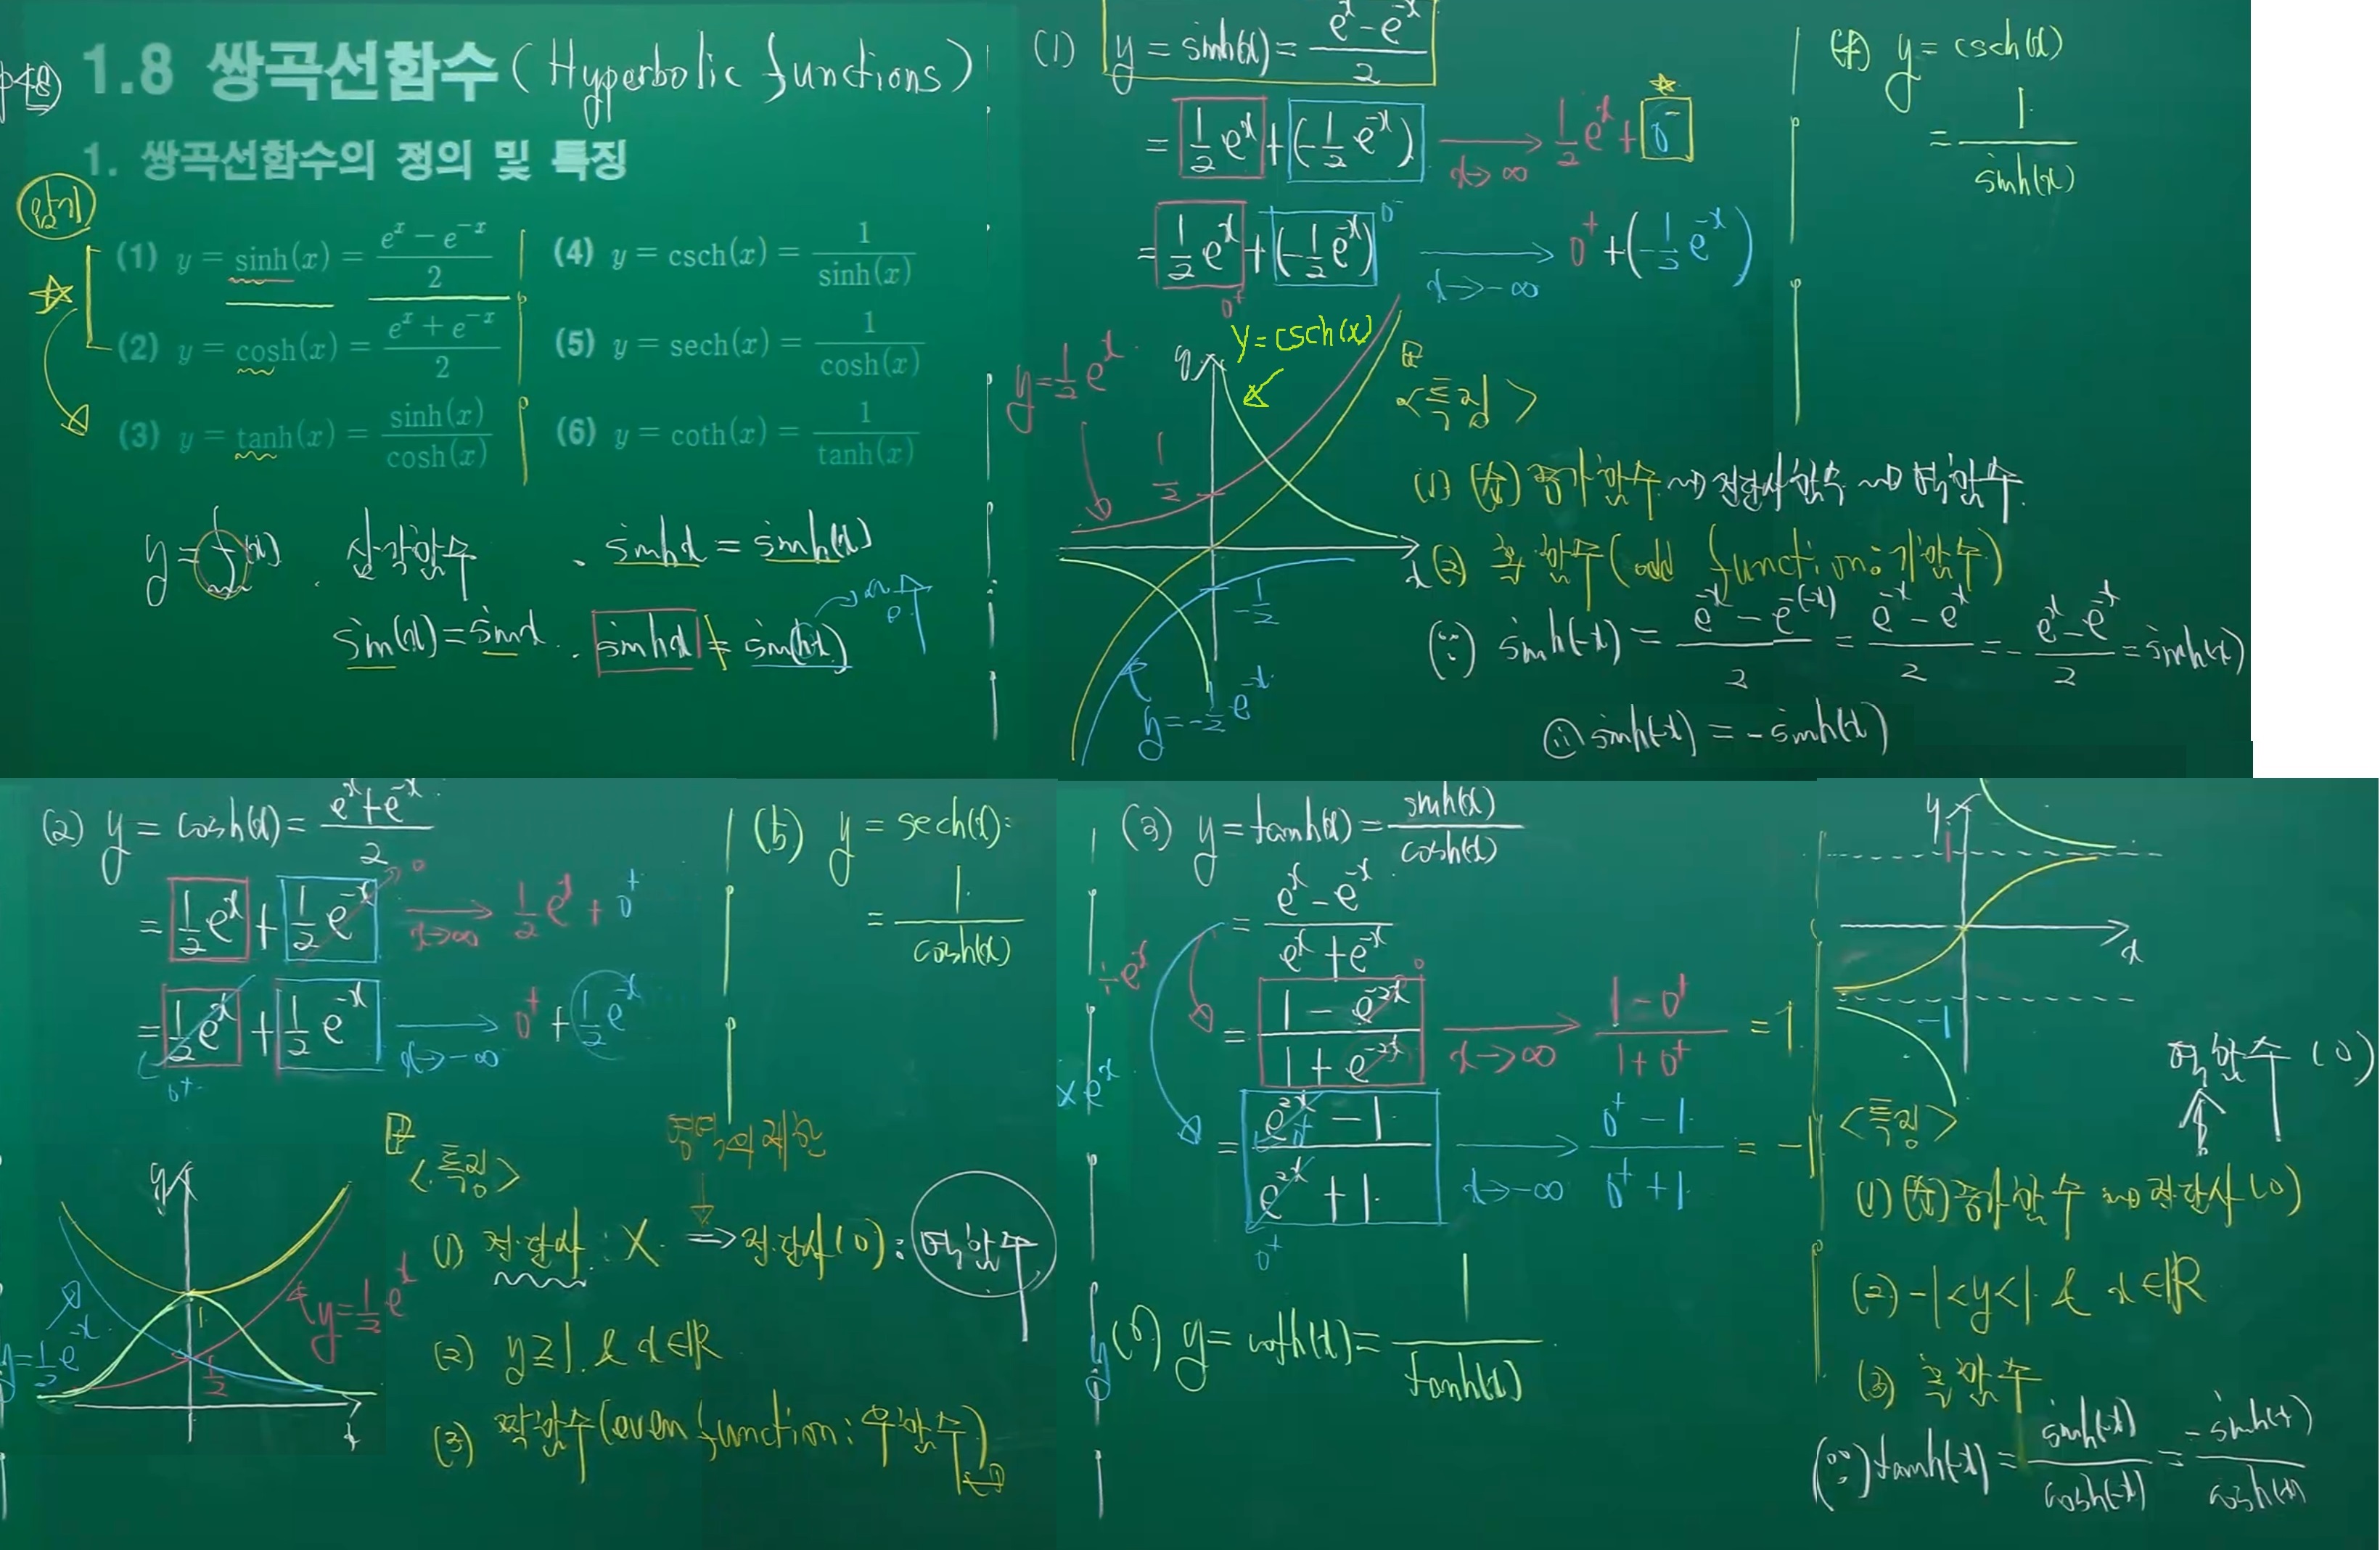 p48)
1.8 쌍곡선함수 (Hyperbolic functions)
1. 쌍곡선함수의 정의 및 특징
암기
☆
(1) y = sinh(x) = (e^x − e^{−x})/2
(2) y = cosh(x) = (e^x + e^{−x})/2
(3) y = tanh(x) = sinh(x)/cosh(x)
(4) y = csch(x) = 1/sinh(x)
(5) y = sech(x) = 1/cosh(x)
(6) y = coth(x) = 1/tanh(x)
y = f(x) . 삼각함수
sin(x) = sinx
. sinhx = sinh(x)
. sinhx ≠ sin(hx)
(1) y = sinh(x) = (e^x − e^{−x})/2
= 1/2 e^x + (−1/2 e^{−x}) → x→∞ 1/2 e^x + 0^−
= 1/2 e^x + (−1/2 e^{−x}) → x→−∞ 0^+ + (−1/2 e^{−x})
0^+ 0^−
y = csch(x)
y = 1/2 e^x
y
1/2
x
−1/2
y = −1/2 e^{−x}
<특징>
(1) (순)증가함수 ⇝ 전단사함수 ⇝ 역함수
(2) 홀함수 (odd function: 기함수)
(∵) sinh(−x) = (e^{−x} − e^{−(−x)})/2 = (e^{−x} − e^x)/2 = − (e^x − e^{−x})/2 = sinh(x)
sinh(−x) = − sinh(x)
(4) y = csch(x)
= 1/sinh(x)
(2) y = cosh(x) = (e^x + e^{−x})/2
= 1/2 e^x + 1/2 e^{−x} → x→∞ 1/2 e^x + 0^+
= 1/2 e^x + 1/2 e^{−x} → x→−∞ 0^+ + 1/2 e^{−x}
0^+
y
y = 1/2 e^x
y = 1/2 e^{−x}
1
1/2
x
<특징>
영역의 제한
(1) 전단사 : X ⇒ 전단사(O) : 역함수
(2) y ≥ 1 & x ∈ ℝ
(3) 짝함수 (even function: 우함수)
(5) y = sech(x)
= 1/cosh(x)
(3) y = tanh(x) = sinh(x)/cosh(x)
= (e^x − e^{−x})/(e^x + e^{−x})
÷e^x
= (1 − e^{−2x})/(1 + e^{−2x}) → x→∞ (1 − 0^+)/(1 + 0^+) = 1
×e^x
= (e^{2x} − 1)/(e^{2x} + 1) → x→−∞ (0^+ − 1)/(0^+ + 1) = −1
0^+
(6) y = coth(x) = 1/tanh(x)
y
1
x
−1
역함수 (O)
<특징>
(1) (순)증가함수 ⇝ 전단사(O)
(2) −1 < y < 1 & x ∈ ℝ
(3) 홀함수
(∵) tanh(−x) = sinh(−x)/cosh(−x) = −sinh(x)/cosh(x)